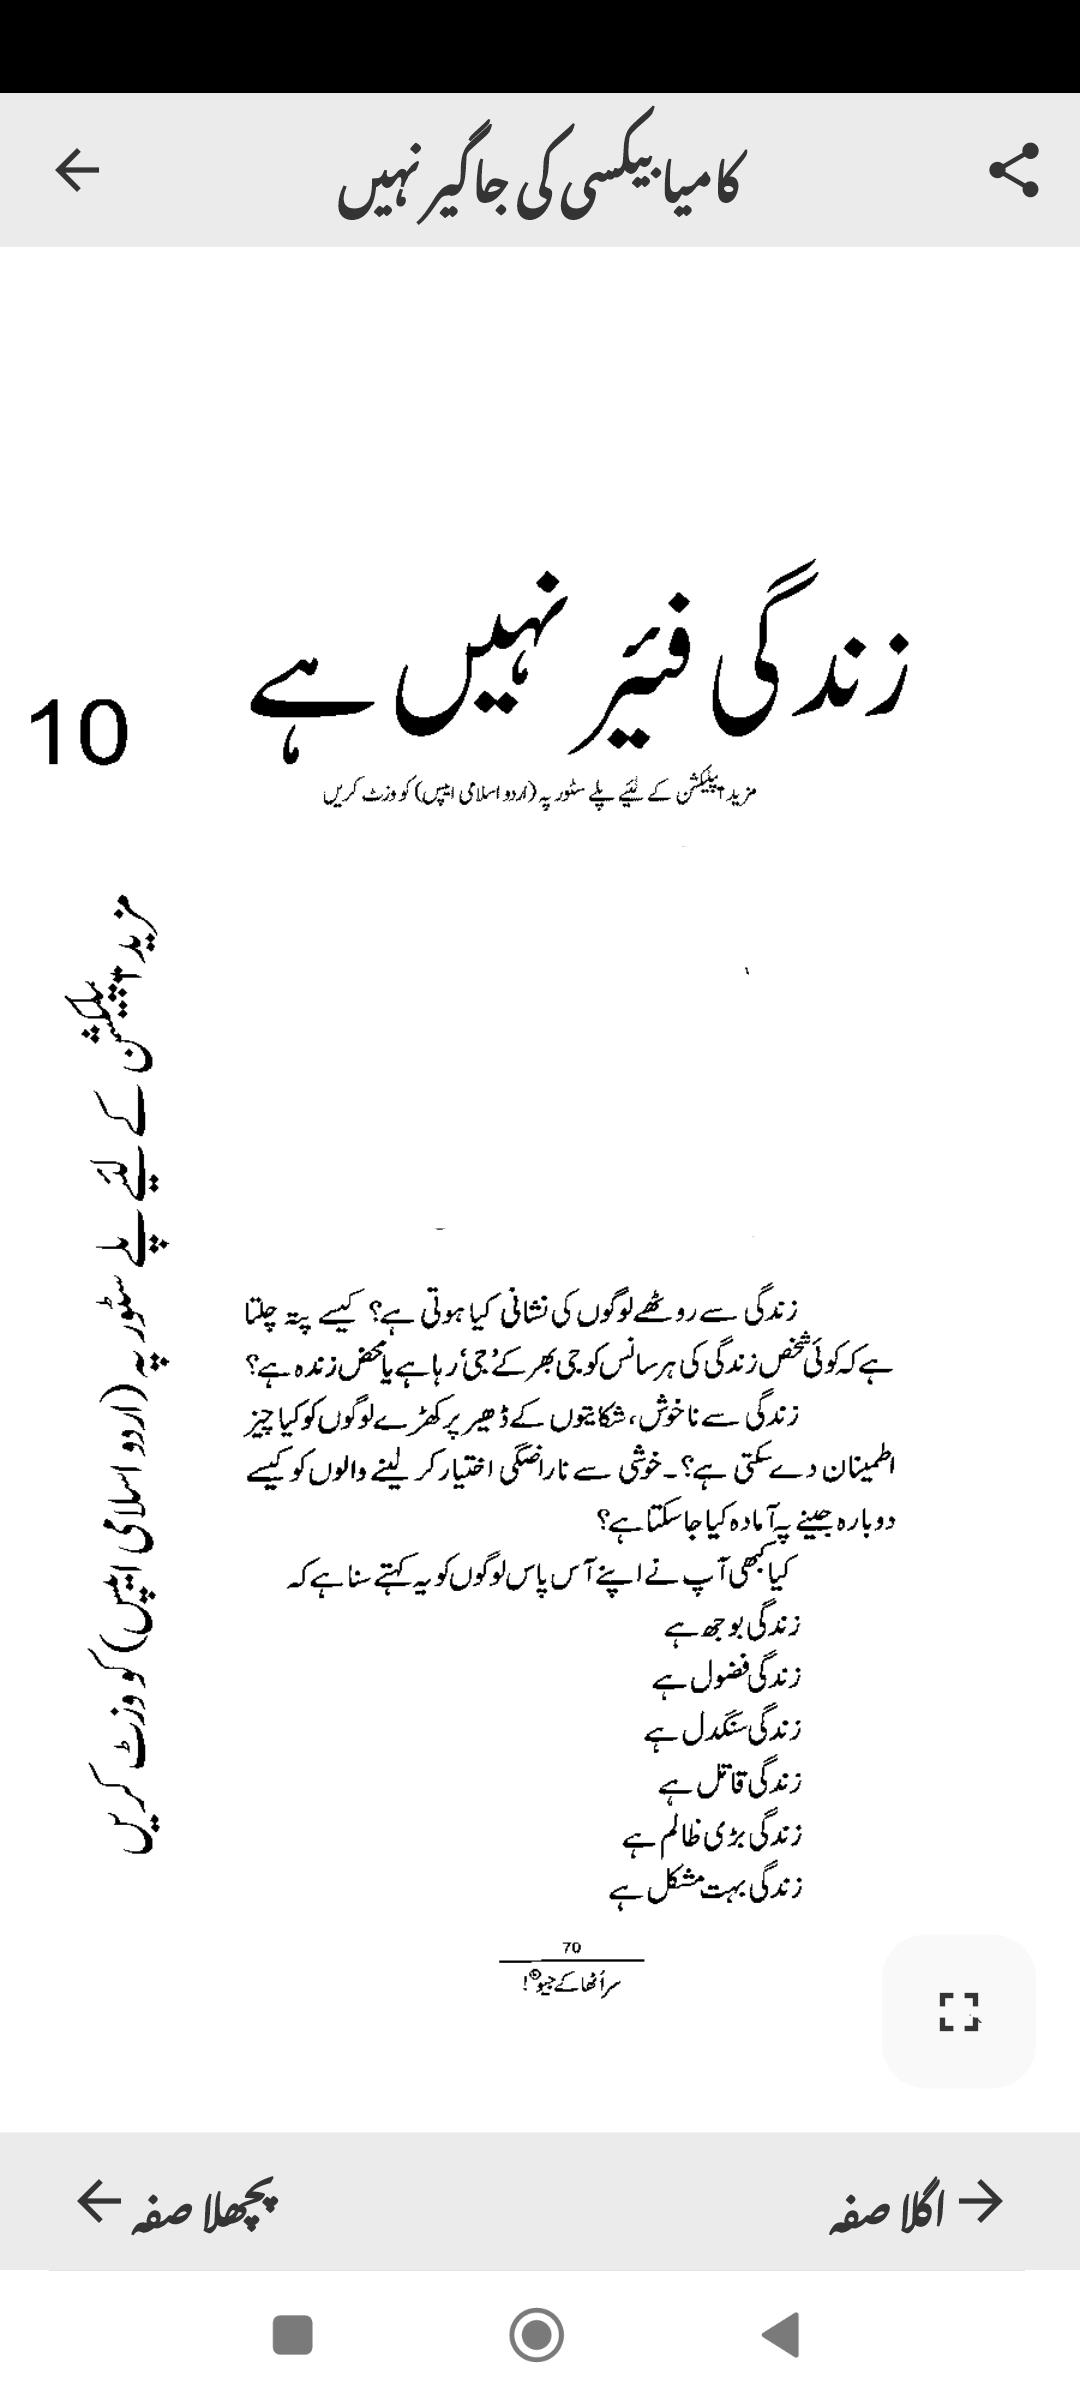 کامیابیکسی کی جاگیر نہیں
زندگی فئیر نہیں ہے
10
مزید آپپلیکشن کے لئیے پلے سٹور پہ (اردو اسلامی ایپس) کو وزٹ کریں
مزید آپپلیکشن کے لئیے پلے سٹور پہ (اردو اسلامی ایپس) کو وزٹ کریں
زندگی سے روٹھے لوگوں کی نشانی کیا ہوتی ہے؟ کیسے پتہ چلتا
ہے کہ کوئی شخص زندگی کی ہر سانس کو جی بھر کے 'جی' رہا ہے یا محض زندہ ہے؟
زندگی سے ناخوش، شکایتوں کے ڈھیر پر کھڑے لوگوں کو کیا چیز
اطمینان دے سکتی ہے؟۔ خوشی سے ناراضگی اختیار کر لینے والوں کو کیسے
دوبارہ جینے پہ آمادہ کیا جا سکتا ہے؟
کیا کبھی آپ نے اپنے آس پاس لوگوں کو یہ کہتے سنا ہے کہ
زندگی بوجھ ہے
زندگی فضول ہے
زندگی سنگدل ہے
زندگی قاتل ہے
زندگی بڑی ظالم ہے
زندگی بہت مشکل ہے
70
سر اُٹھا کے جیو!
اگلا صفہ
پچھلا صفہ